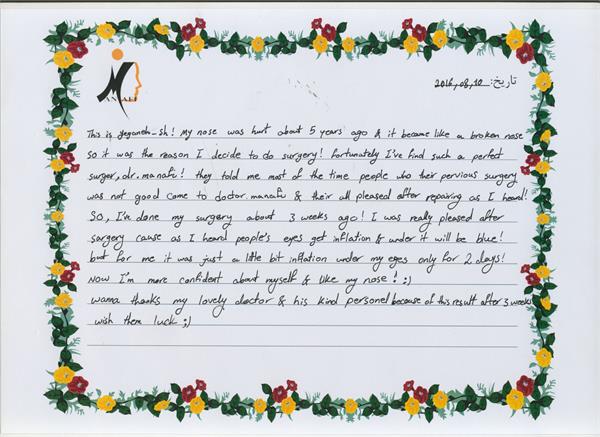 MANAFI
تاریخ: 2016,08,10
This is yeganeh_sh! My nose was hurt about 5 years ago & it became like a broken nose
so it was the reason I decide to do surgery! fortunately I've find such a perfect
surger, dr.manafi! they told me most of the time people who their pervious surgery
was not good come to doctor.manafi & their all pleased after repairing as I heard!
So, I've done my surgery about 3 weeks ago! I was really pleased after
sargery cause as I heard people's eyes get inflation & under it will be blue!
but for me it was just a little bit inflation under my eyes only for 2 days!
Now I'm more confident about myself & like my nose! :)
wanna thanks my lovely doctor & his kind personel because of this result after 3 weeks
wish them luck ;)